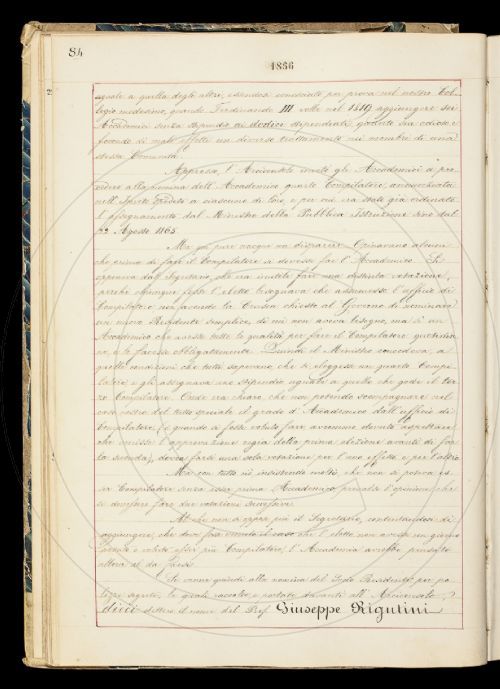 84
1866
uguale a quella degli altri, essendosi conosciuto per prova nel nostro Col-
legio medesimo, quando Ferdinando III volle nel 1819 aggiungere sei
Accademici senza stipendio ai dodici stipendiati, quanto sia odioso e
fecondo di mali effetti un diverso trattamento nei membri di una
stessa Comunità.
Appresso, l'Arciconsolo invitò gli Accademici a pro-
cedere alla nomina dell'Accademico quarto Compilatore, annunciata
nell'Invito spedito a ciascuno di loro, e per cui era stato già ordinato
l'assegnamento dal Ministro della Pubblica Istruzione sino dal
22 Agosto 1865.
Ma qui pure nacque un disparere. Opinavano alcuni
che prima di fare il Compilatore si dovesse far l'Accademico. Si
opponeva dal Segretario, che era inutile fare una distinta votazione,
perché chiunque fosse l'eletto bisognava che assumesse l'ufficio di
Compilatore non avendo la Crusca chiesto al Governo di nominare
un nuovo Residente semplice, di cui non aveva bisogno, ma sì un
Accademico che avesse tutte le qualità per fare il Compilatore quotidia-
no, e lo facesse obbligatamente. Quindi il Ministro concedeva, a
quelle condizioni che tutti sapevano, che si eleggesse un quarto Compi-
latore, e gli assegnava uno stipendio uguale a quello che gode il ter-
zo Compilatore. Onde era chiaro che non potendo scompagnarsi nel
caso nostro del tutto speciale il grado d'Accademico dall'ufficio di
Compilatore, (e quando si fosse voluto fare avremmo dovuto aspettare
che venisse l'approvazione regia della prima elezione avanti di far
la seconda), dovea farsi una sola votazione per l'uno effetto e per l'altro.
Ma con tutto ciò insistendo molti che non si poteva es-
ser Compilatore senza esser prima Accademico, prevalse l'opinione che
si dovessero fare due votazioni
Al che non si oppose più il Segretario, contentandosi di
aggiungere, che dove fosse venuto il caso che l'eletto non avesse un giorno
potuto o voluto esser più Compilatore, l'Accademia avrebbe pensato
allora al da farsi.
Si venne quindi alla nomina del Socio Residente per po-
lizze segrete, le quali raccolte, e portate davanti all'Arciconsolo,
dieci dettero il nome del Prof. Giuseppe Rigutini